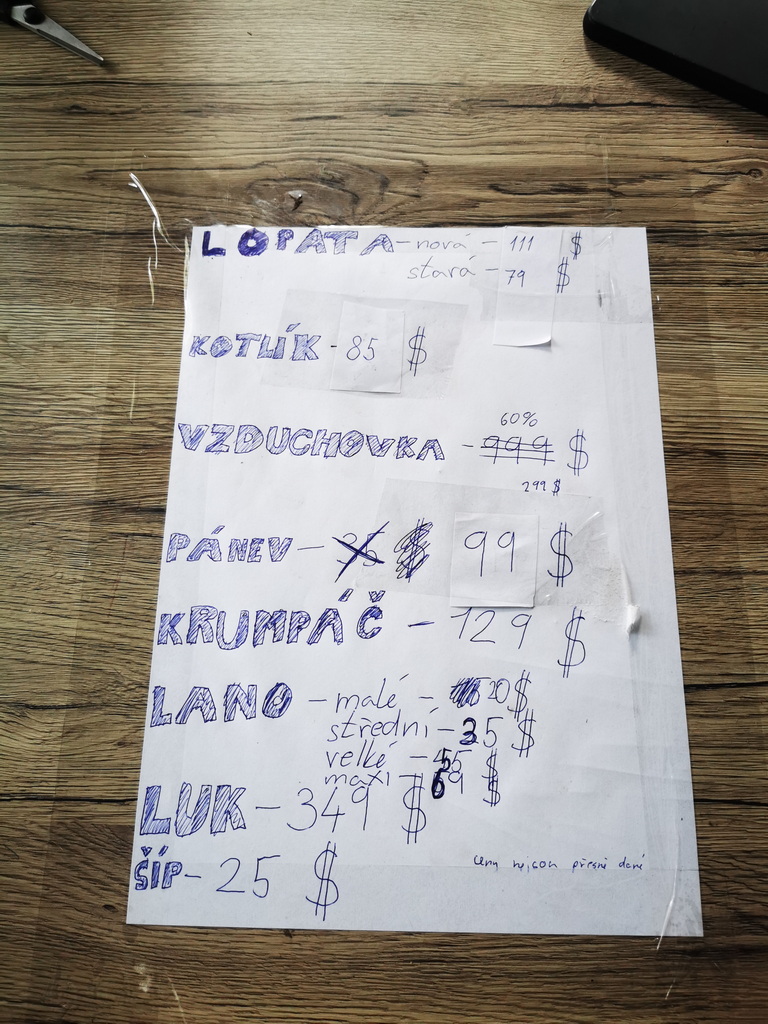 LOPATA - nová - 111 $
stará - 79 $
KOTLÍK - 85 $
60%
VZDUCHOVKA - 999 $
299 $
PÁNEV - $ 99 $
KRUMPÁČ - 129 $
LANO - malé - 20 $
střední - 35 $
velké - $
maxi - 69 $
LUK - 349 $
ŠÍP - 25 $
Ceny nejsou přesně dané